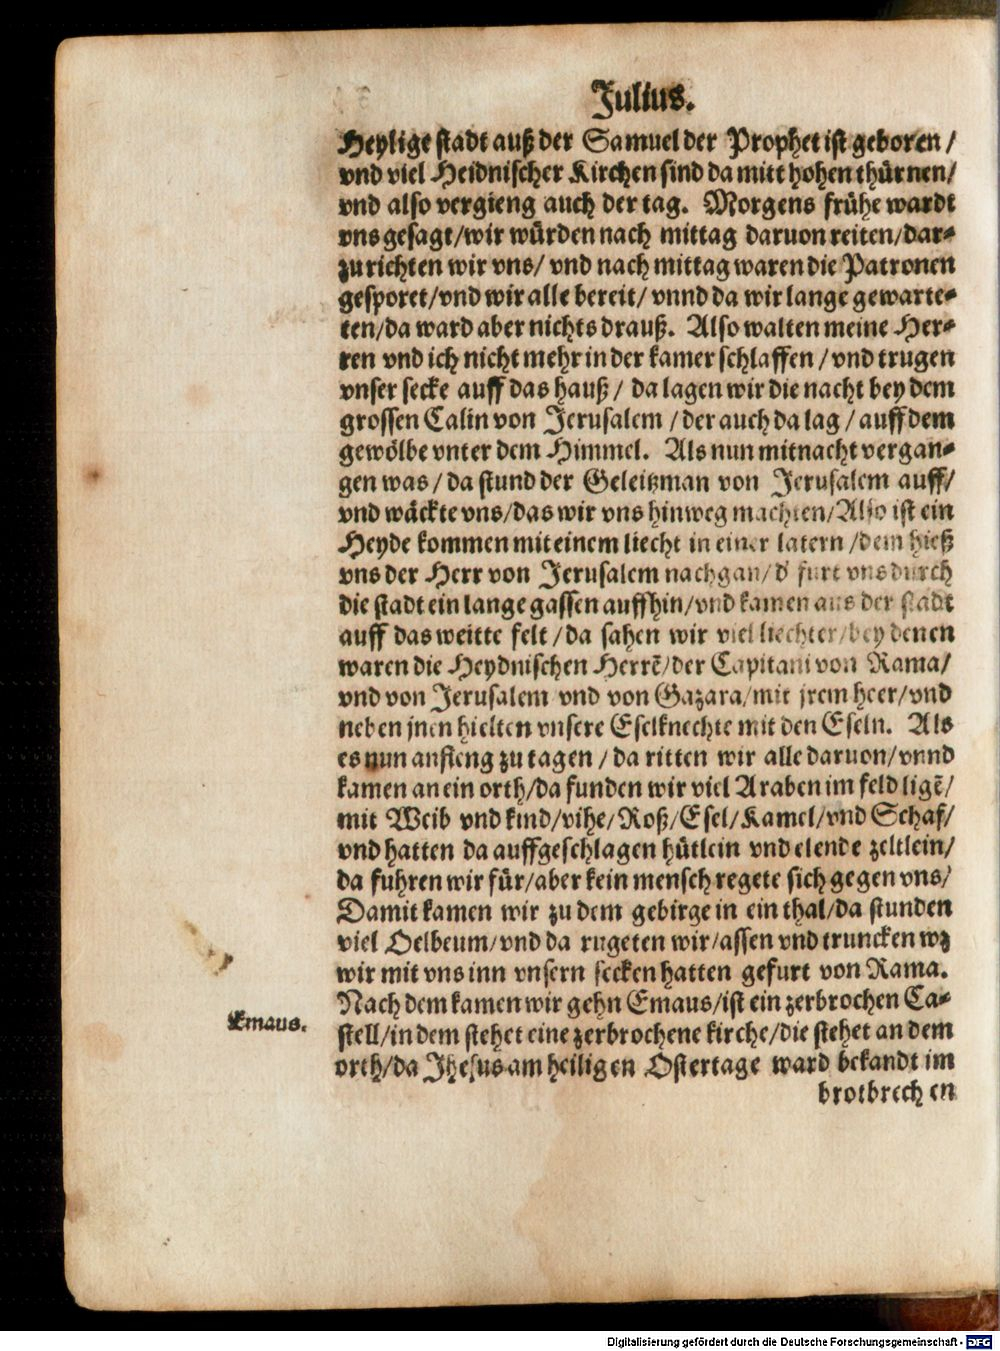 Julius.
Heylige stadt auß der Samuel der Prophet ist geboren /
vnd viel Heidnischer Kirchen sind da mitt hohen thürnen/
vnd also vergieng auch der tag. Morgens frühe wardt
vns gesagt/wir würden nach mittag daruon reiten/dar⸗
zu richten wir vns/ vnd nach mittag waren die Patronen
gesporet/vnd wir alle bereit/ vnnd da wir lange gewarte⸗
ten/da ward aber nichts drauß. Also walten meine Her⸗
ren vnd ich nicht mehr in der kamer schlaffen / vnd trugen
vnser secke auff das hauß / da lagen wir die nacht bey dem
grossen Calin von Jerusalem / der auch da lag / auff dem
gewölbe vnter dem Himmel. Als nun mitnacht vergan⸗
gen was / da stund der Geleitzman von Jerusalem auff/
vnd wäckte vns/das wir vns hinweg machten/Also ist ein
Heyde kommen mit einem liecht in einer latern /dem hieß
vns der Herr von Jerusalem nachgan/d' furt vns durch
die stadt ein lange gassen auffhin/vnd kamen aus der stadt
auff das weitte felt /da sahen wir viel liechter/bey denen
waren die Heydnischen Herrē/der Capitani von Rama/
vnd von Jerusalem vnd von Gazara/mit jrem heer/vnd
neben jnen hielten vnsere Eselknechte mit den Eseln. Als
es nun anfieng zu tagen / da ritten wir alle daruon/vnnd
kamen an ein orth/da funden wir viel Araben im feld ligē/
mit Weib vnd kind/vihe/Roß/Esel/Kamel/vnd Schaf/
vnd hatten da auffgeschlagen hütlein vnd elende zeltlein/
da fuhren wir für/aber kein mensch regete sich gegen vns/
Damit kamen wir zu dem gebirge in ein thal/da stunden
viel Oelbeum/vnd da rugeten wir/assen vnd truncken wz
wir mit vns inn vnsern secken hatten gefurt von Rama.
Nach dem kamen wir gehn Emaus/ist ein zerbrochen Ca⸗
Emaus.
stell/in dem stehet eine zerbrochene kirche/die stehet an dem
orth/da Jhesus am heiligen Ostertage ward bekandt im
brotbrechen
Digitalisierung gefördert durch die Deutsche Forschungsgemeinschaft - DFG